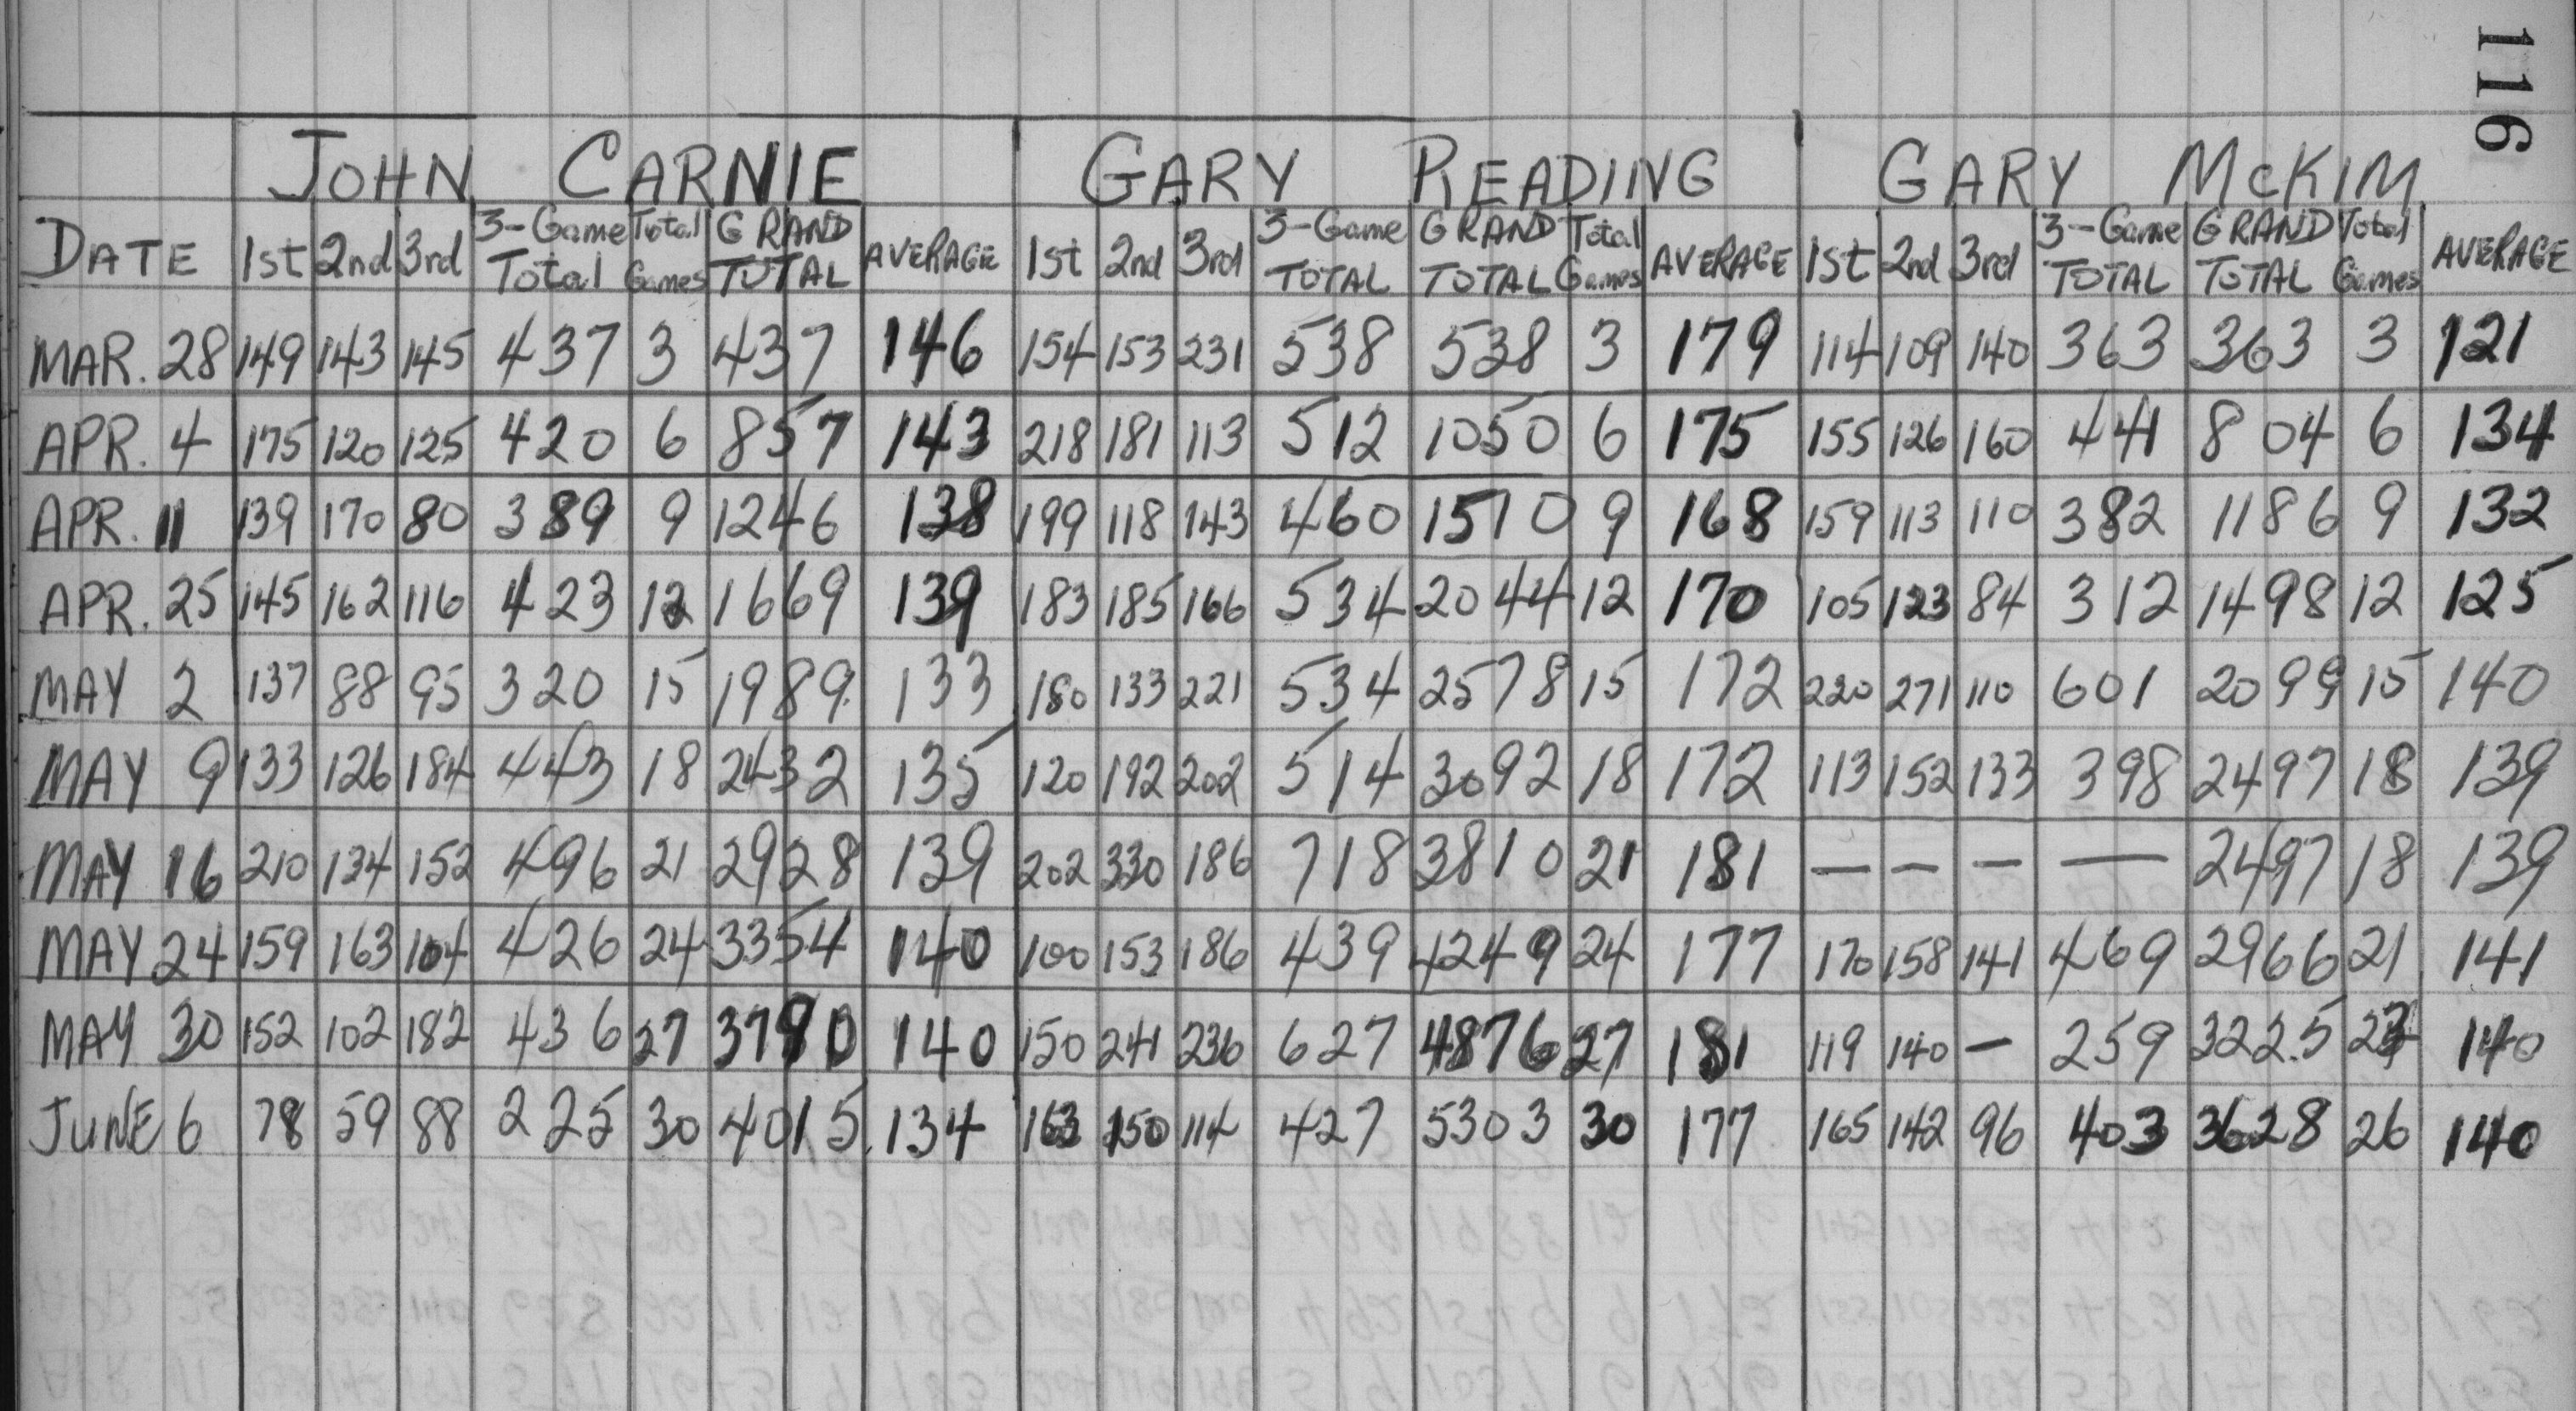 116
JOHN CARNIE GARY READING GARY McKIM
DATE 1st 2nd 3rd 3-Game Total Total Games GRAND TOTAL AVERAGE 1st 2nd 3rd 3-Game TOTAL GRAND TOTAL Total Games AVERAGE 1st 2nd 3rd 3-Game TOTAL GRAND TOTAL Total Games AVERAGE
MAR. 28 149 143 145 437 3 437 146 154 153 231 538 538 3 179 114 109 140 363 363 3 121
APR. 4 175 120 125 420 6 857 143 218 181 113 512 1050 6 175 155 126 160 441 804 6 134
APR. 11 139 170 80 389 9 1246 138 199 118 143 460 1510 9 168 159 113 110 382 1186 9 132
APR. 25 145 162 116 423 12 1669 139 183 185 166 534 2044 12 170 105 123 84 312 1498 12 125
MAY 2 137 88 95 320 15 1989 133 180 133 221 534 2578 15 172 220 271 110 601 2099 15 140
MAY 9 133 126 184 443 18 2432 135 120 192 202 514 3092 18 172 113 152 133 398 2497 18 139
MAY 16 210 134 152 496 21 2928 139 202 330 186 718 3810 21 181 — — — — 2497 18 139
MAY 24 159 163 104 426 24 3354 140 100 153 186 439 4249 24 177 170 158 141 469 2966 21 141
MAY 30 152 102 182 436 27 3790 140 150 241 236 627 4876 27 181 119 140 — 259 3225 23 140
JUNE 6 78 59 88 225 30 4015 134 163 150 114 427 5303 30 177 165 142 96 403 3628 26 140